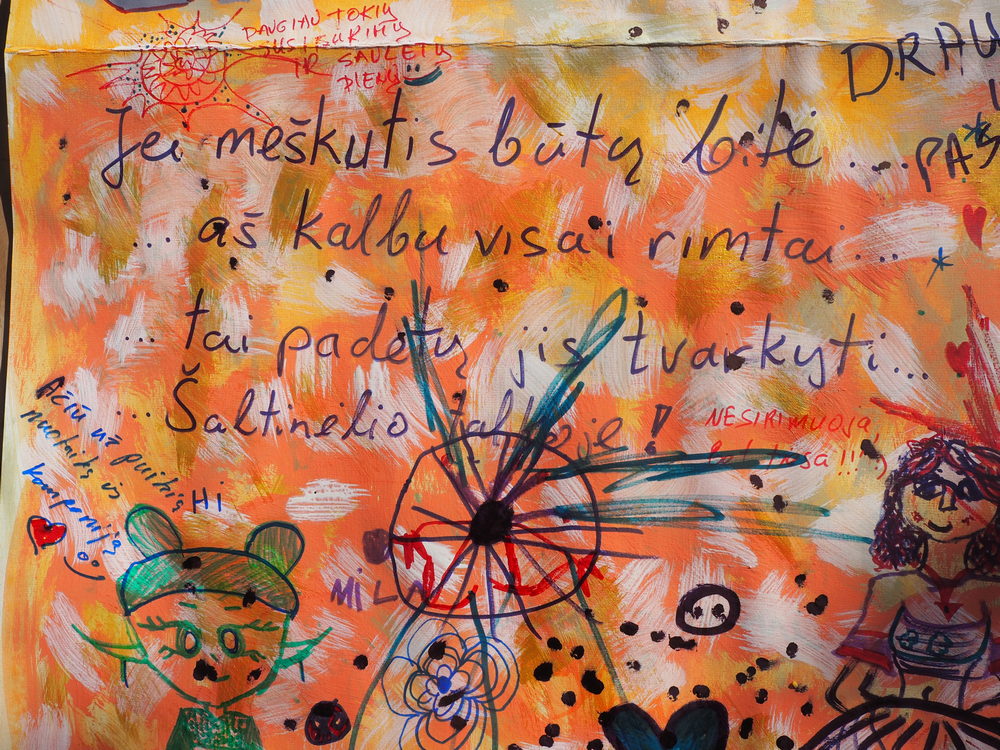 DAUGIAU TOKIŲ
SUSIBŪRIMŲ
IR SAULĖTŲ
DIENŲ
DRAU
Jei meškutis būtų bitė ...
PAS
... aš kalbu visai rimtai ...
... tai padėtų jis tvarkyti...
... Šaltinėlio talkoje!
NESIRIMUOJA
Ačiū už puikią
nuotaiką ir
kompaniją
HI
MILA